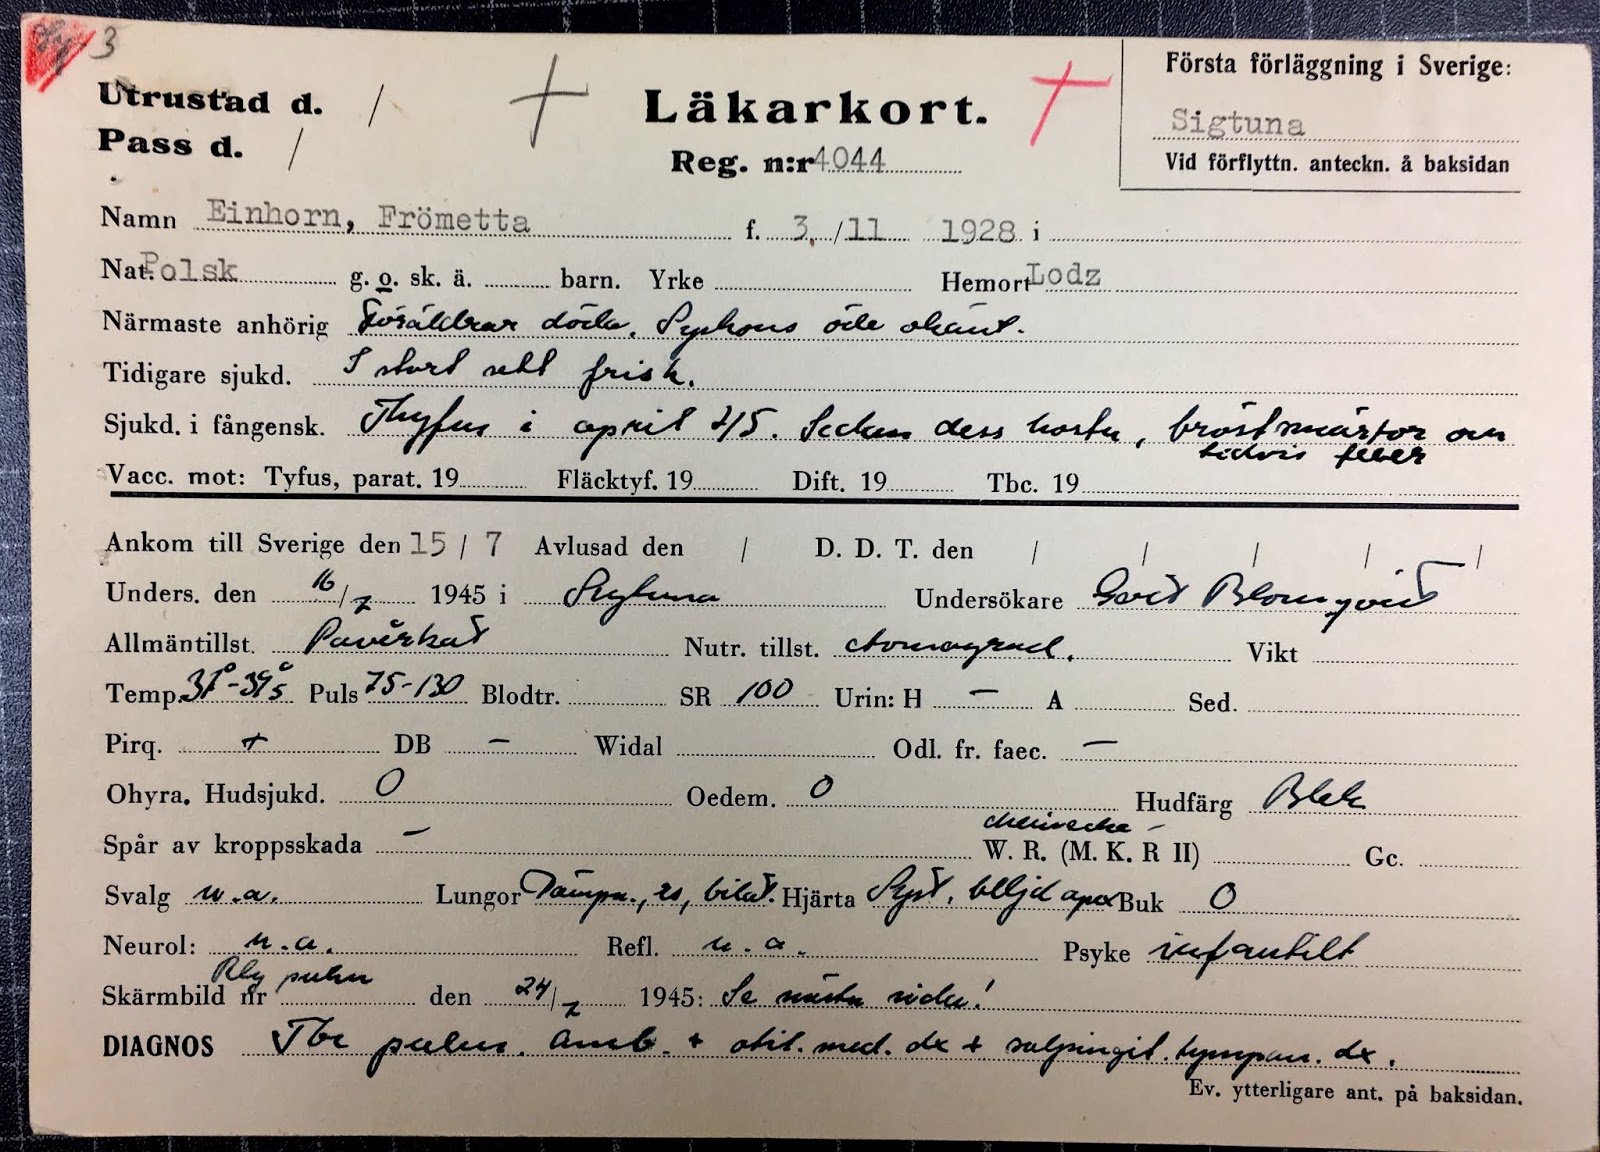 3
Utrustad d. /
Pass d. /
Läkarkort.
Reg. n:r 4044
Första förläggning i Sverige:
Sigtuna
Vid förflyttn. anteckn. å baksidan
Namn Einhorn, Frömetta f. 3. /11 1928 i
Nat. Polsk g. o. sk. ä. barn. Yrke Hemort Lodz
Närmaste anhörig Föräldrar döda. Syskons öde okänt.
Tidigare sjukd. I stort sett frisk.
Sjukd. i fångensk. Thyfus i april 45. Sedan dess hosta, bröstsmärtor och
tidvis feber
Vacc. mot: Tyfus, parat. 19 Fläcktyf. 19 Dift. 19 Tbc. 19
Ankom till Sverige den 15 / 7 Avlusad den / D. D. T. den / / / / /
Unders. den 16/7 1945 i Sigtuna Undersökare Blomqvist
Allmäntillst. Påverkat Nutr. tillst. Vikt
Temp. 37°-39°5 Puls 75-130 Blodtr. SR 100 Urin: H — A Sed.
Pirq. + DB — Widal Odl. fr. faec. —
Ohyra. Hudsjukd. 0 Oedem. 0 Hudfärg Blek
Spår av kroppsskada — W. R. (M. K. R II) Gc.
Svalg u.a. Lungor Dämpn., rs, bilat. Hjärta Syst. blåljud apex Buk 0
Neurol: u.a. Refl. u.a. Psyke infantilt
Rtg pulm
Skärmbild nr den 24/7 1945: Se nästa sida!
DIAGNOS Tbc pulm. amb. + otit. med. dx + salpingit. tympan. dx.
Ev. ytterligare ant. på baksidan.